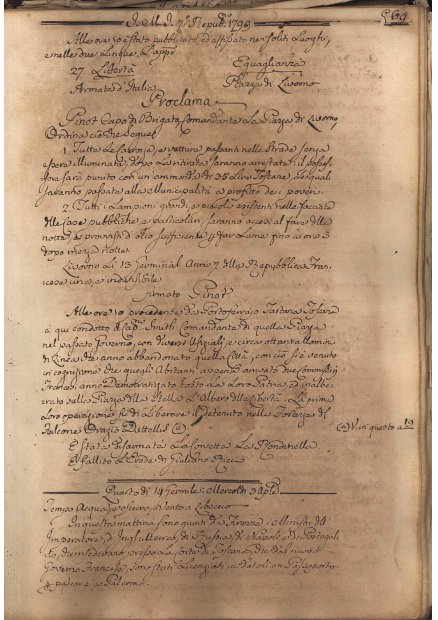 1799
69
Alle ore 10 è stato pubblicato, ed affissato ne' soliti Luoghi,
e nelle due Lingue
27. Libertà Eguaglianza
Armata d'Italia Piazza di Livorno
Proclama
Pinot Capo di Brigata Comandante la Piazza di Livorno,
Ordina ciò che segue
1. Tutte le e vetture passanti nelle strade senza
essere illuminate la ritirata saranno arrestate, il
sarà punito con un ammenda di 35 Lire Toscane, le quali
saranno passate alla Municipalità a profitto de' poveri.
2. Tutti i Lampioni grandi, e piccoli esistenti nelle facciate
delle case pubbliche, e particolari, saranno accesi al fare della
notte, e provvisti d'olio sufficiente per far Lume fino a ore 3
dopo mezza notte.
Livorno li 13 Germinal Anno 7 della Repubblica Fran-
cese una, e indivisibile
Firmato Pinot
Alle ore 10 procedente da Portoferrajo Tartana Toscana
à qui condotto il Smith Comandante di quella Piazza
nel passato Inverno, con diversi Ufiziali, e circa ottanta
di Linea che anno abbandonato quella Città, con ciò si è venuto
in cognizione che quegli Abitanti appena arrivato due Commissari
Francesi anno Democratizata tosto La Loro Patria, ed inalbe-
rato sulla Piazza della L'Albero della Libertà. La prima
Loro operazione fù di Liberare il detenuto nella Fortezza del
Falcone Orazio Dattellis (a)
(a) Vedi questo a 19
È stata disarmata La Corvetta La Rondinella
È fallito L'Erede di Giuliano Ricci
Quarto dì 14 Germile: Mercoldì 3 Aple
Tempo Acqua, e scuro, e Vento a Libeccio
In questa mattina sono giunti da Firenze i Ministri dell'
Imperatore, d'Inghilterra, di Russia, di Napoli, e di Portogal-
lo, che risiedevano presso la Corte di Toscana, che dal nuovo
Governo Francese, sono stati Licenziati, e datoli un Passaporto
per passare a Palermo.